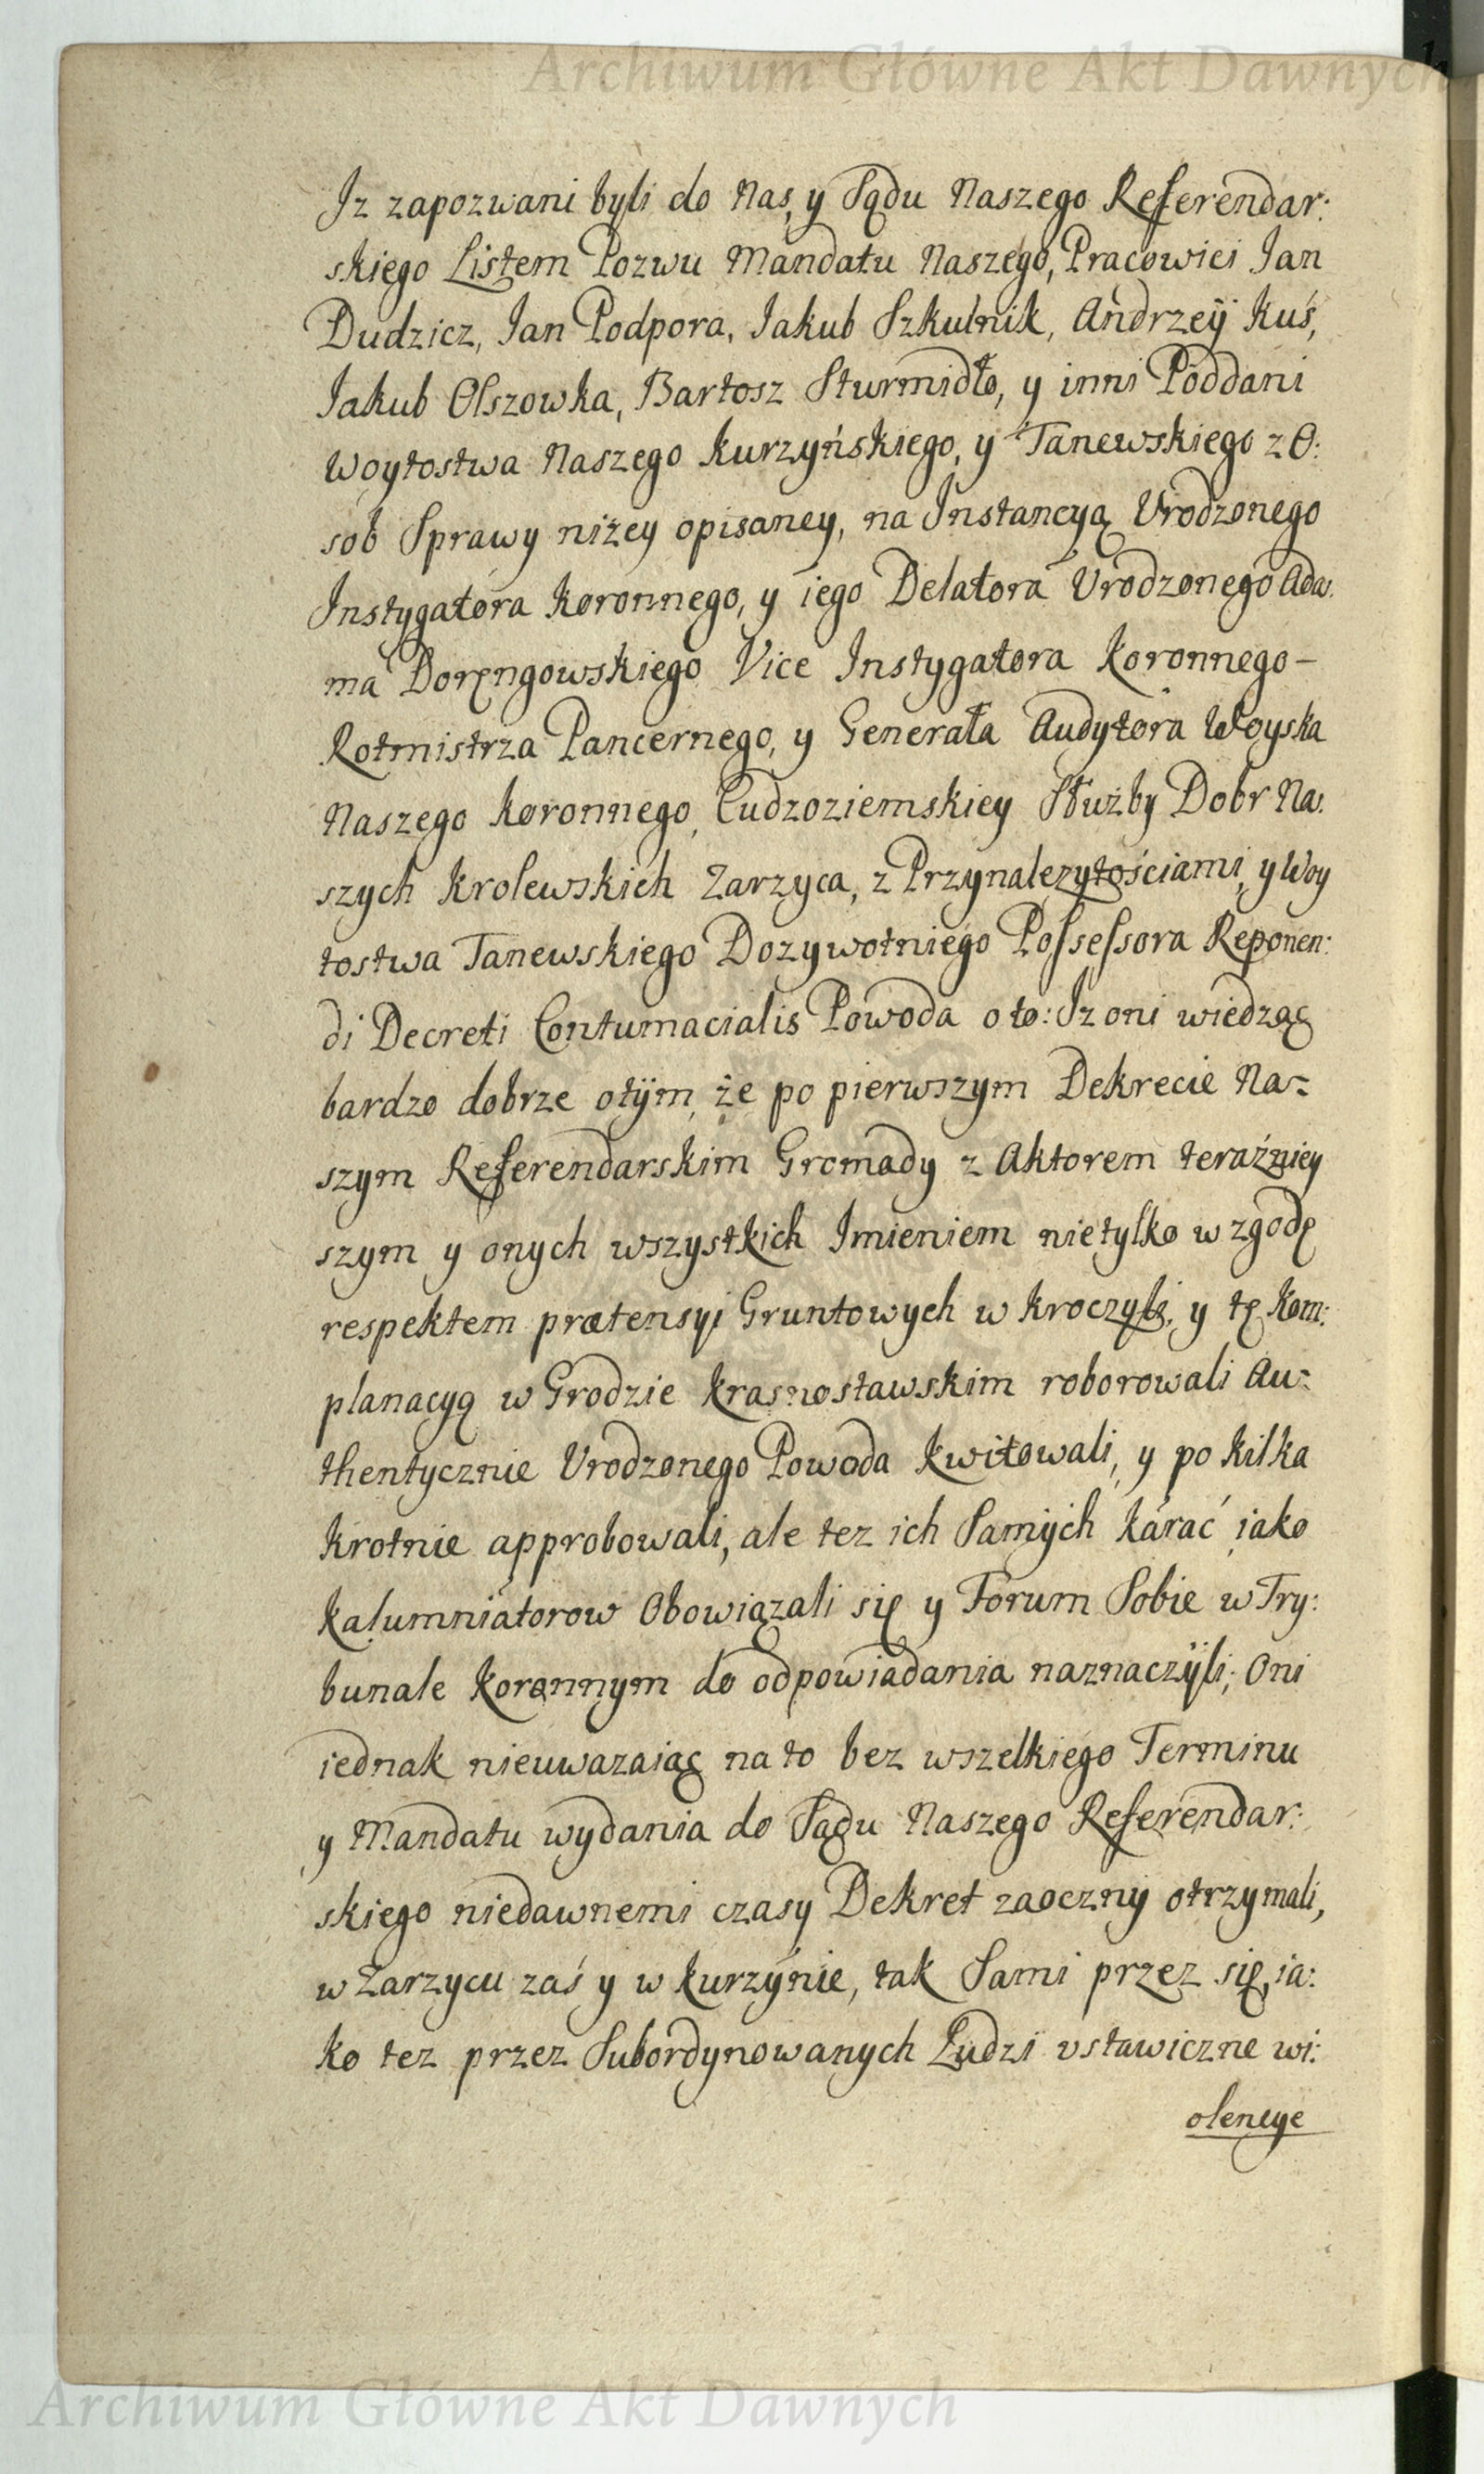 Archiwum Główne Akt Dawnych
Iz zapozwani byli do Nas, y Sądu Naszego Referendar:
skiego Listem Pozwu Mandatu Naszego, Pracowici Ian
Dudzicz, Ian Podpora, Iakub Szkulnik, Andrzeÿ Kuś,
Iakub Olszowka, Bartosz Sturmidło, y inni Poddani
Woytostwa Naszego Kurzyńskiego, y Tanewskiego z O:
sob Sprawy niżey opisaney, na Instancyą Urodzonego
Instygatora Koronnego, y iego Delatora Urodzonego Ada:
ma Doręngowskiego Vice Instygatora Koronnego –
Rotmistrza Pancernego, y Generała Audytora Woyska
Naszego Koronnego, Cudzoziemskiey Służby Dobr Na:
szych Krolewskich Zarzyca, z Przynalezytościami, y Woy
tostwa Tanewskiego Dozywotniego Possessora Reponen:
di Decreti Contumacialis Powoda o to: Iz oni wiedząc
bardzo dobrze otÿm, że po pierwszym Dekrecie Na=
szym Referendarskim Gromady z Aktorem teraźniey
szym y onych wszystkich Imieniem nietylko w zgodę
respektem prætensyi Gruntowych w kroczyli, y tę Kom:
planacyą w Grodzie Krasnostawskim roborowali Au=
thentycznie Urodzonego Powoda kwitowali, y po kilka
krotnie approbowali, ale tez ich Samych karać iako
kalumniatorow Obowiązali się y Forum Sobie w Try:
bunale Koronnym do odpowiadania naznaczÿli; Oni
iednak nieuwazaiąc na to bez wszelkiego Terminu
y Mandatu wydania do Sądu Naszego Referendar:
skiego niedawnemi czasy Dekret zaoczny otrzymali,
w Zarzycu zaś y w Kurzynie, tak Sami przez się, ia:
ko tez przez Subordynowanych Ludzi ustawiczne wi:
olencye
Archiwum Główne Akt Dawnych